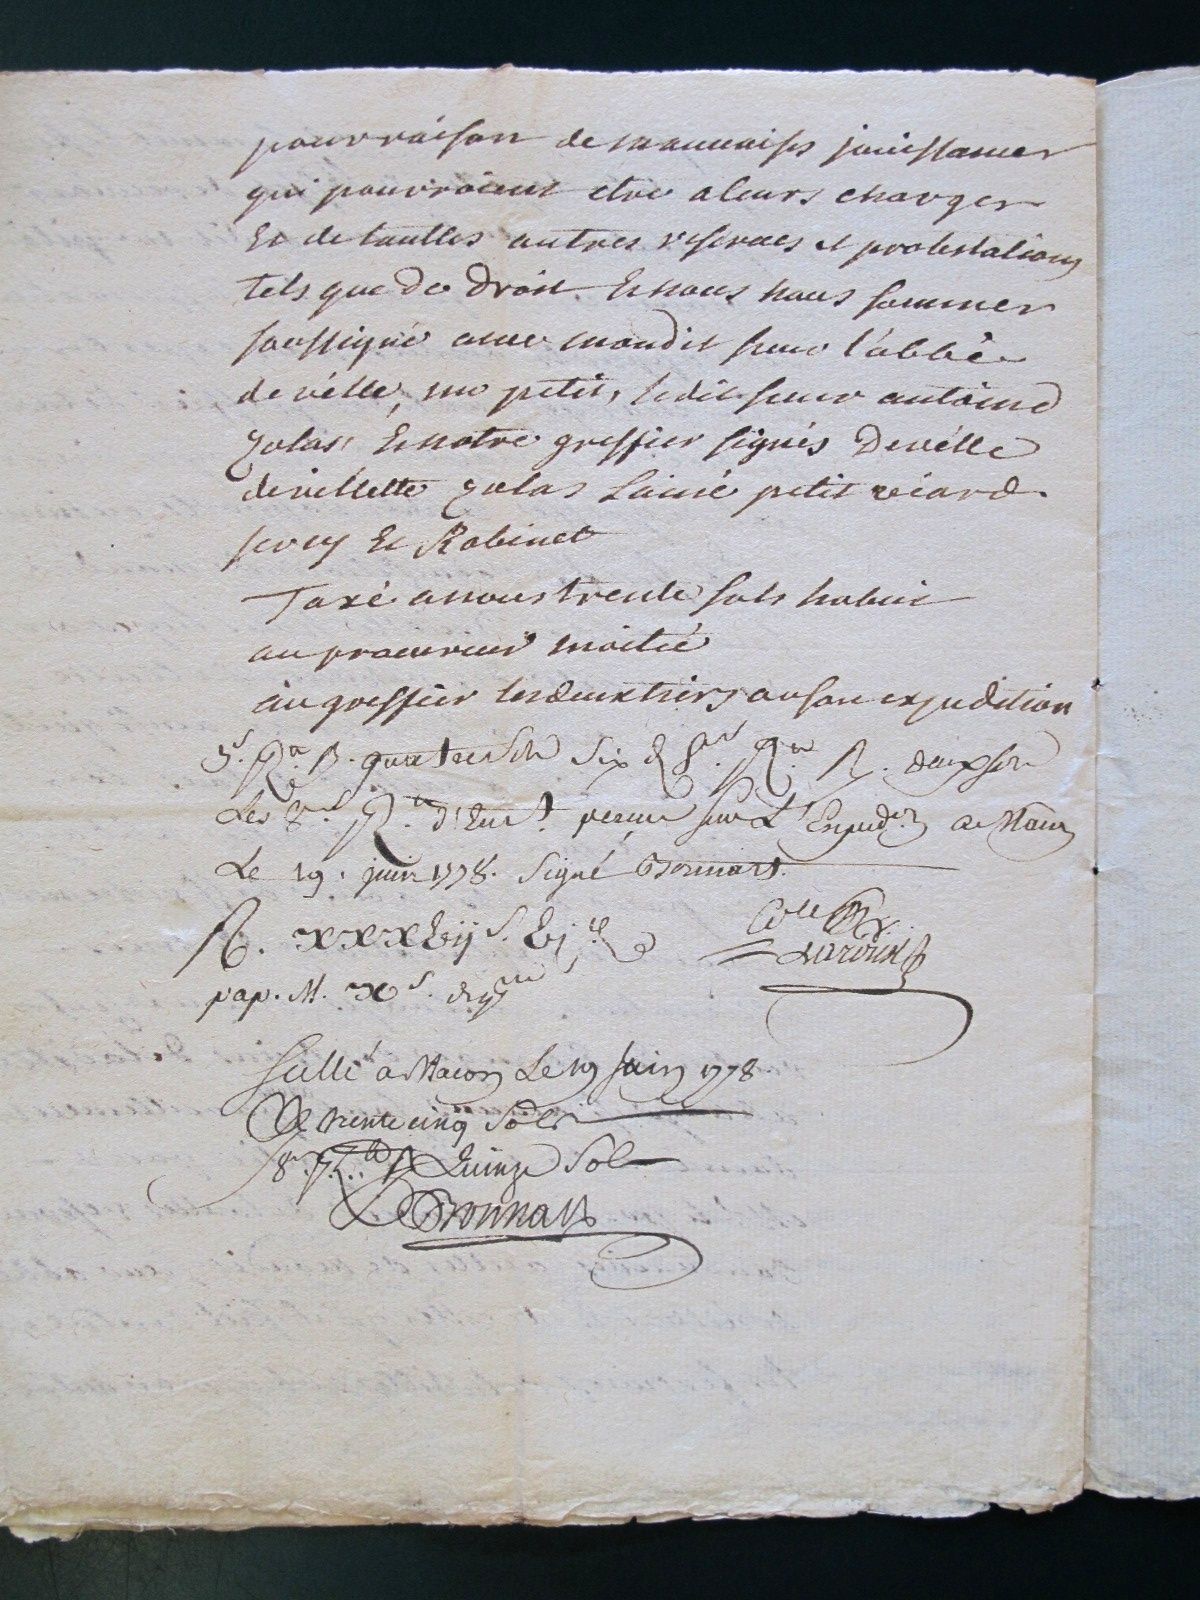 pour raison de mauvaises jouissances
qui pourroient etre a leurs charges
Et de touttes autres reserves et protestations
Tels que de droit. Et nous nous sommes
soussigné avec mondit sieur l'abbé
de vélle, me petit, ledit sieur antoine
Jolas, Et notre greffier signés Devélle
devillette Jolas Lainé petit
et Robinet
Taxé a nous trente sols
au procureur moitié
au greffier les deux tiers ou son expedition
5.s quatre sols six d 8.s R. deux sols
Les 8.s perçus sur L'Expedon a Macon
Le 19. juin 1778. Signé Bonnart.
R. xxx
pap. M. x s.
Scellé a Macon Le 19 Juin 1778
R trente cinq Sols
8.s quinze Sols
Bonnart